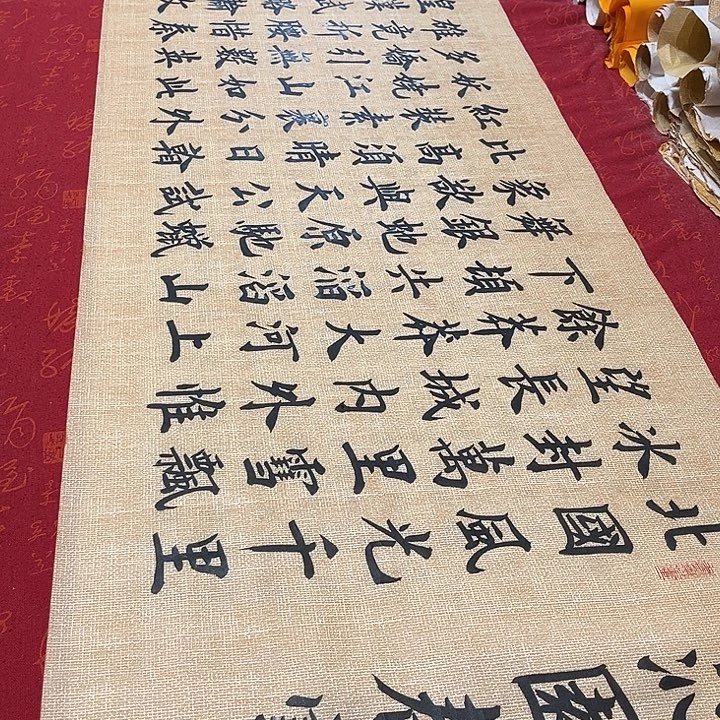 沁園春
北國風光千里
冰封萬里雪飄
望長城內外惟
餘莽莽大河上
下頓失滔滔山
舞銀蛇原馳蠟
象欲與天公試
比高須晴日看
紅裝素裹分外
妖嬈江山如此
多嬌引無數英
雄競折腰惜秦
皇